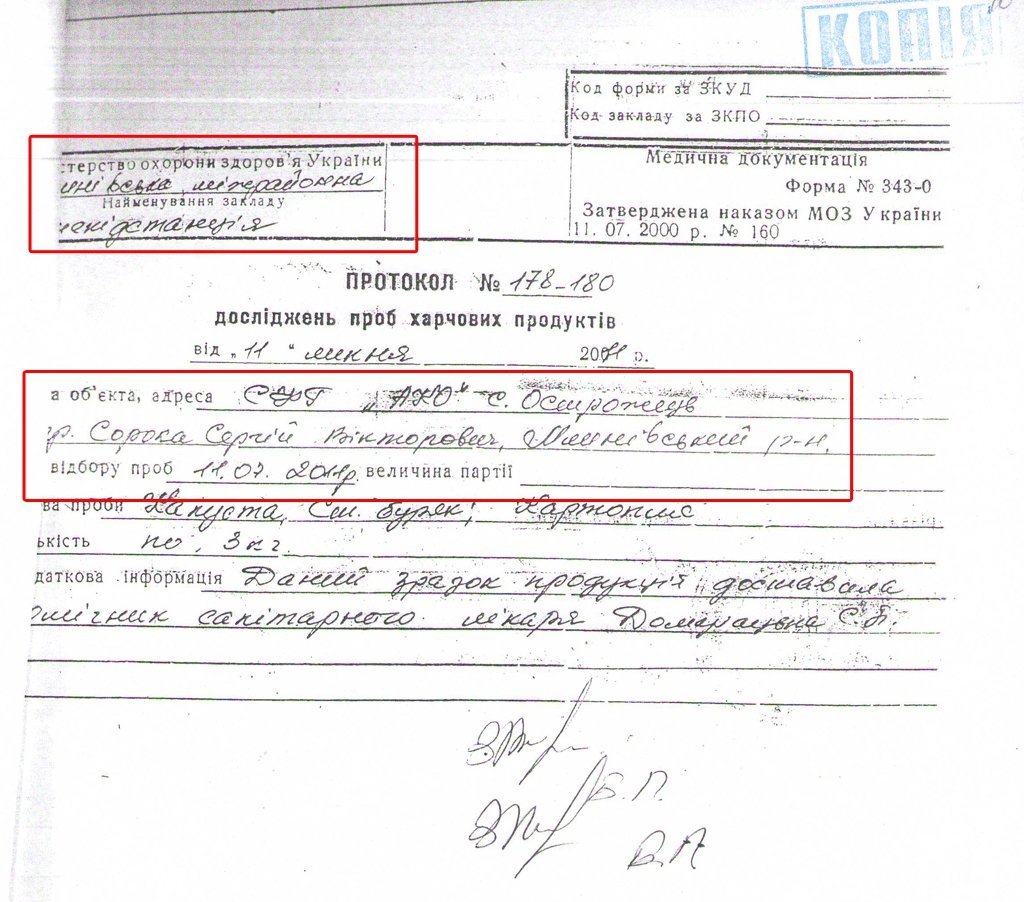 КОПІЯ
Код форми за ЗКУД
Код закладу за ЗКПО
стерство охорони здоров'я України
инівська міжрайонна
Найменування закладу
санідстанція
Медична документація
Форма № 343-0
Затверджена наказом МОЗ України
11. 07. 2000 р. № 160
ПРОТОКОЛ № 178-180
досліджень проб харчових продуктів
від „ 11 " липня 2011 р.
а об'єкта, адреса „АКО" с. Острожець
р. Сорока Сергій Вікторович, Млинівський р-н.
відбору проб 11.07. 2011р. величина партії
ва проби Капуста, Ст. буряк, Картопля
ькість по 3 кг
даткова інформація Даний зразок продукції доставила
омічник санітарного лікаря С.В.
В.П.
В.П.